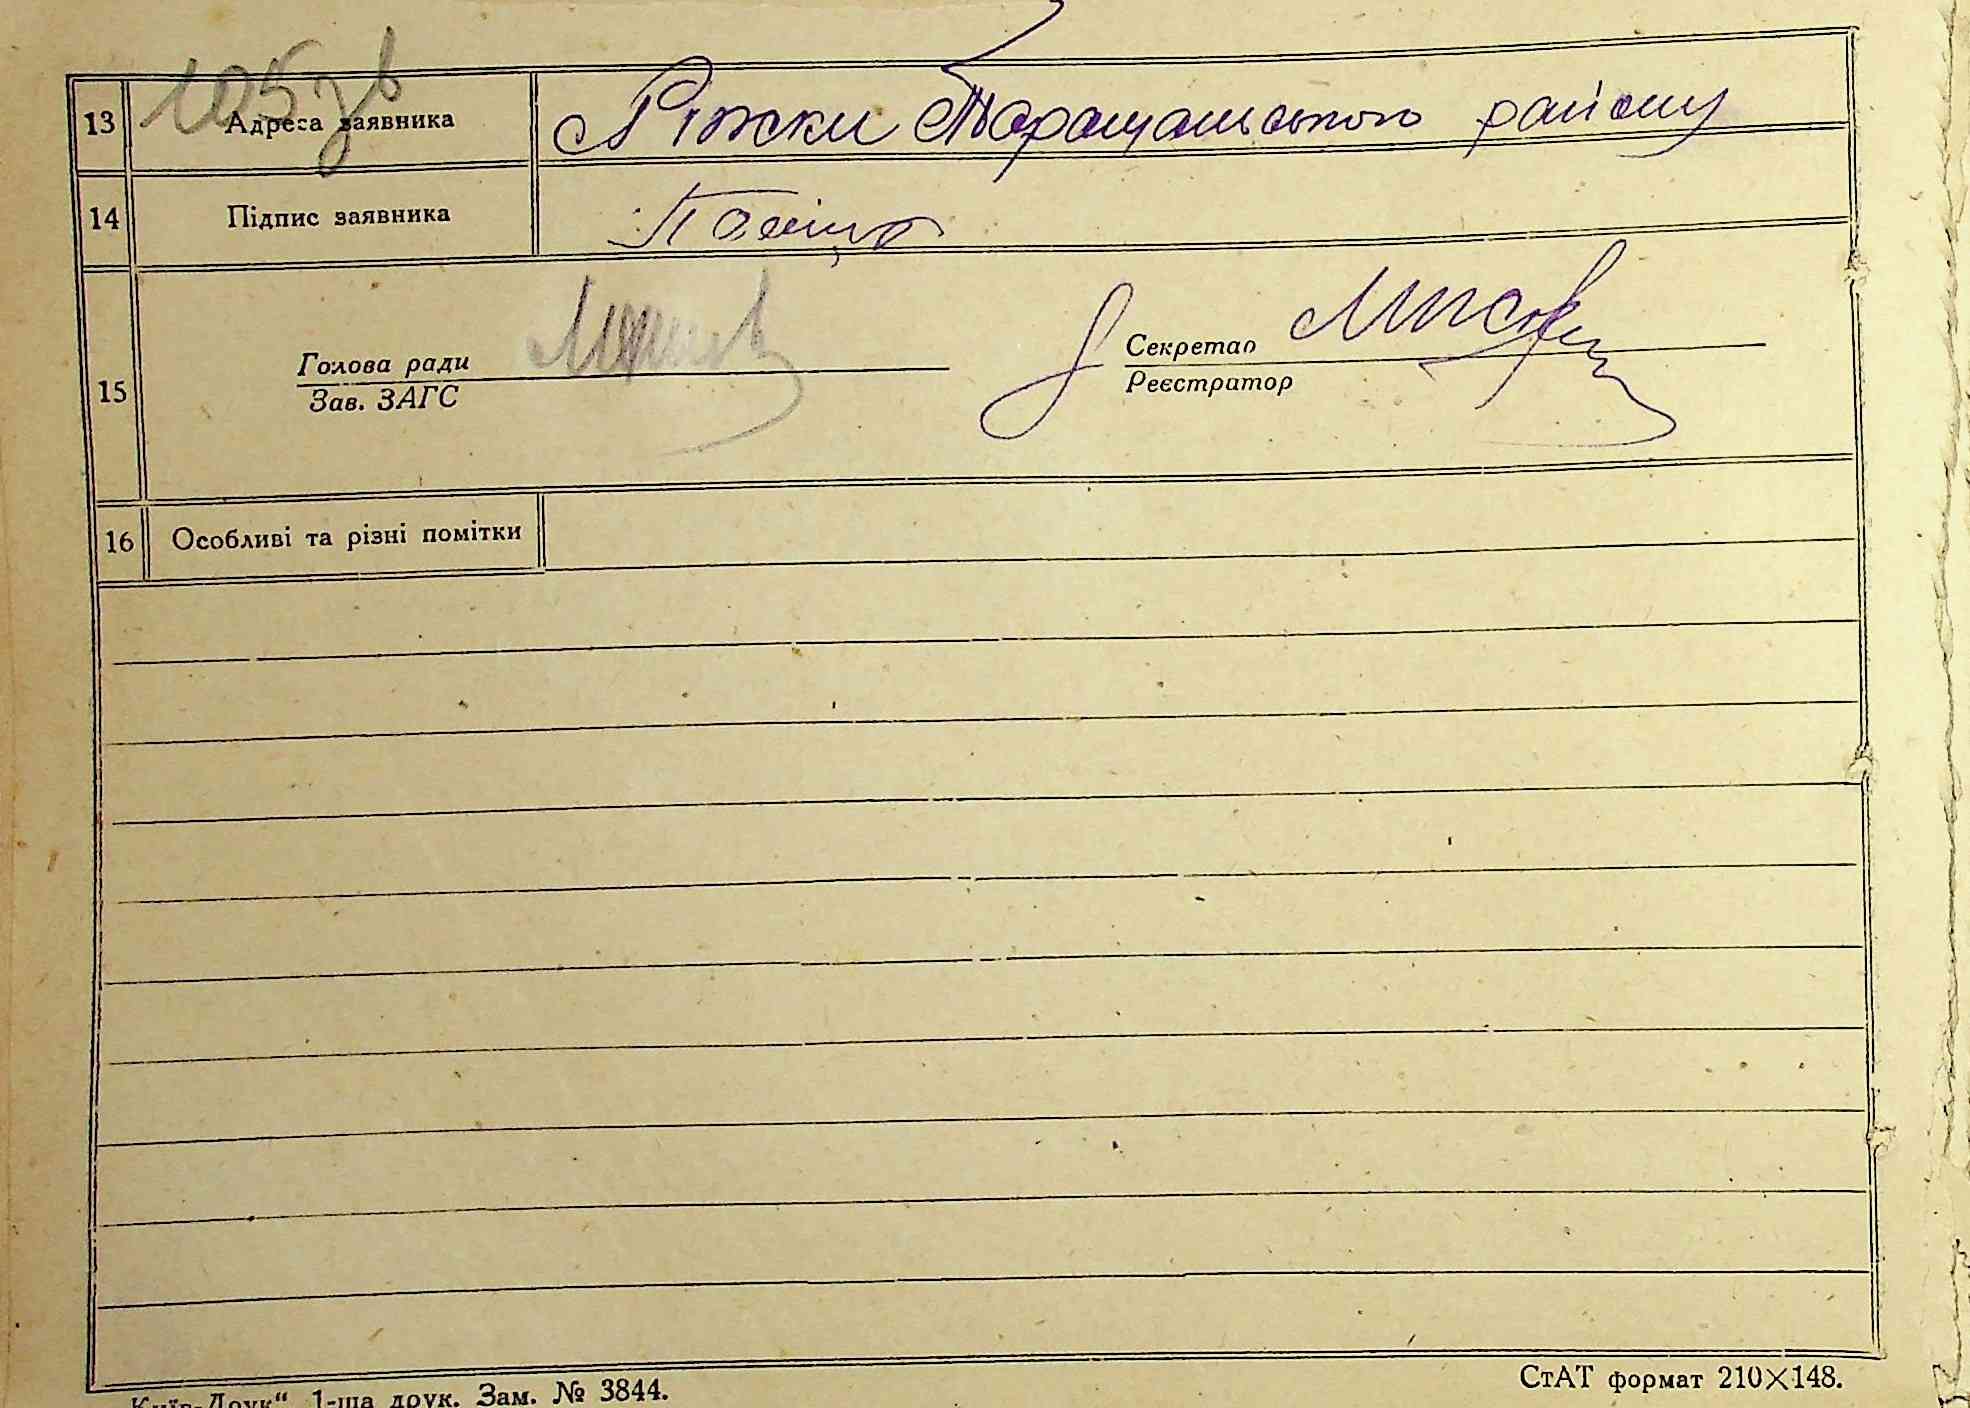 105 зв
13 Адреса заявника Ріжки Таращанського району
14 Підпис заявника
15 Голова ради Секретар
Зав. ЗАГС Реєстратор
16 Особливі та різні помітки
Київ-Друк“ 1-ша друк. Зам. № 3844. СтАТ формат 210×148.